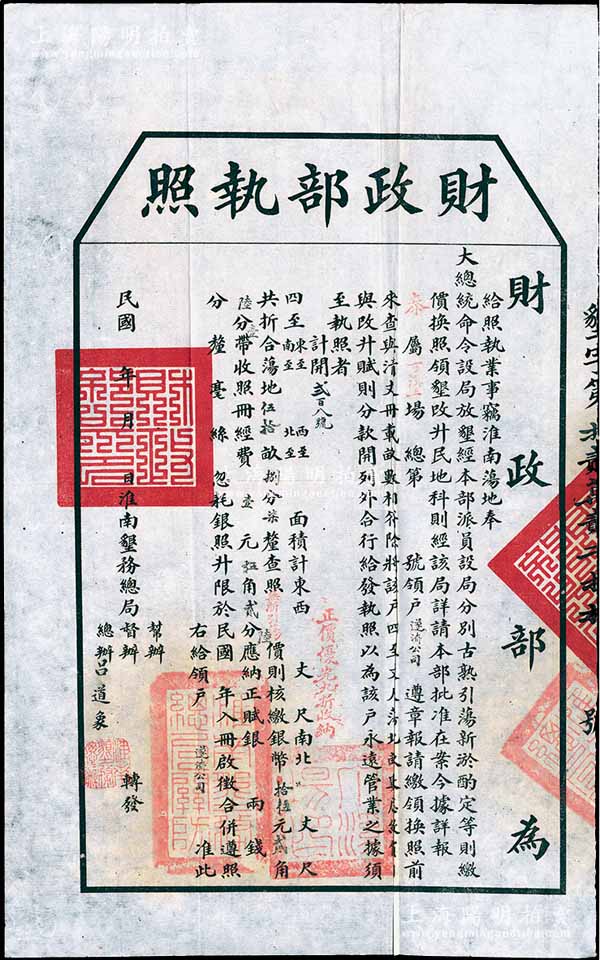 上海陽明拍賣
財政部執照
財政部為
給照執業事竊淮南蕩地奉
大總統命令設局放墾經本部派員設局分別古熟引蕩新淤酌定等則繳
價換照領墾改升民地科則經該局詳請本部批准在案今據詳報
泰屬 場總第 號領戶遂濟公司遵章報請繳領換照前
來查與清丈冊載畝數相符除將該戶四至
與改升賦則分款開列外合行給發執照以為該戶永遠管業之據須
至執照者
計開 弍百八號
四至 東至 南至 西至 北至 面積計東西 丈 尺南北 丈 尺
正價優免折收納
共折合蕩地伍拾 畝捌分柒釐查照 價則核繳銀幣拾伍元弍角
陸分帶收照冊經費壹元 角弍分應納正賦銀 兩 錢
分 釐 毫 絲 忽耗銀照升限於民國 年入冊啟徵合併遵照
右給領戶 遂濟公司 准此
民國 年 月 日淮南墾務總局督辦
幫辦
總辦呂道象
轉發
上海陽明拍賣